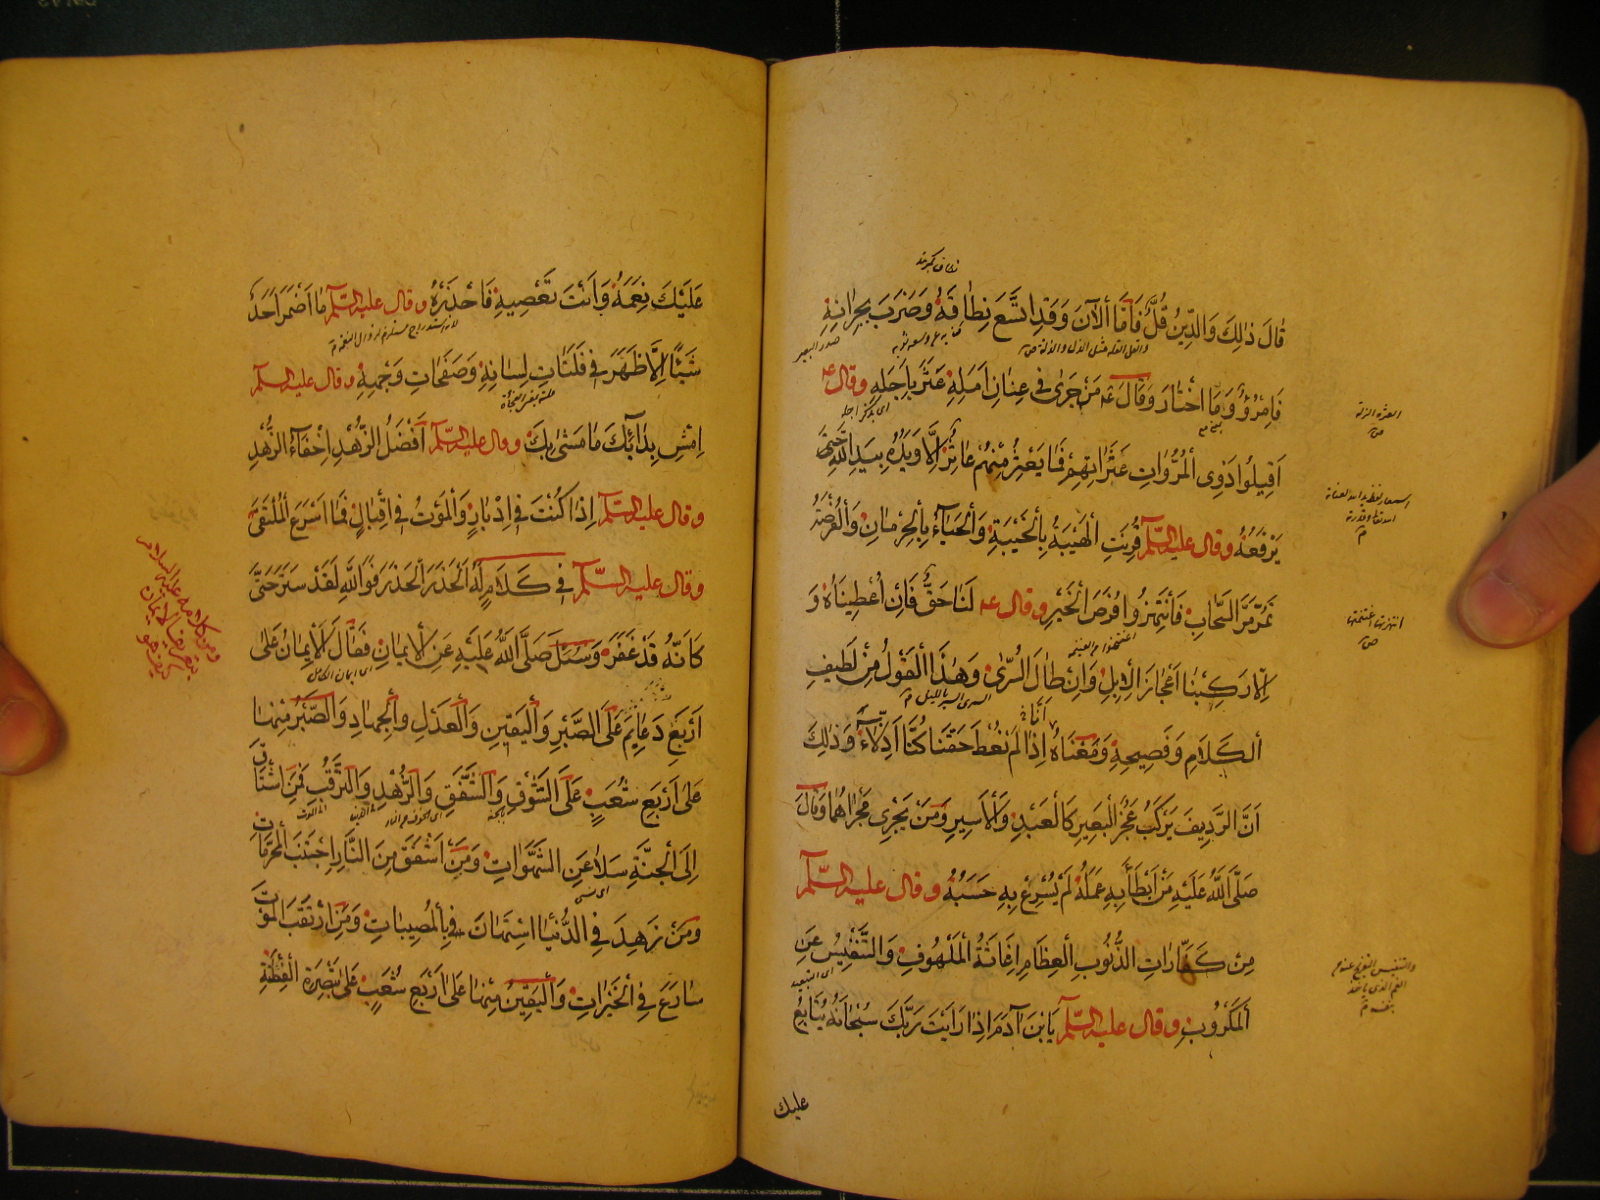 قَالَ ذٰلِكَ وَالدِّينُ قُلٌّ فَأَمَّا الْآنَ وَقَدِ اتَّسَعَ نِطَاقُهُ وَضَرَبَ بِجِرَانِهِ
صدر البعير
فَامْرُؤٌ وَمَا اخْتَارَ وَقَالَ عه مَنْ جَرٰى فِى عِنَانِ اَمَلِهِ عَثَرَ بِاَجَلِهِ وقال عه
العثرة الزلة
اَقِيلُوا ذَوِى الْمُرُوَّاتِ عَثَرَاتِهِمْ فَمَا يَعْثُرُ مِنْهُمْ عَاثِرٌ اِلَّا وَيَدُهُ بِيَدِ اللّٰهِ حَتّٰى
يَرْفَعُهُ وقال عليه السّلم قُرِنَتِ الْهَيْبَةُ بِالْخَيْبَةِ وَالْحَيَاءُ بِالْحِرْمَانِ وَالْفُرْصَةُ
تَمُرُّ مَرَّ السَّحَابِ فَانْتَهِزُوا فُرَصَ الْخَيْرِ وقال عه لَنَا حَقٌّ فَاِنْ اُعْطِينَاهُ وَ
انتهزتها اغتنمتها
اِلَّا رَكِبْنَا اَعْجَازَ الْاِبِلِ وَاِنْ طَالَ السُّرٰى وَهٰذَا الْقَوْلُ مِنْ لَطِيفِ
السرى السير بالليل
الْكَلَامِ وَفَصِيحِهِ وَمَعْنَاهُ اَنَّا اِذَا لَمْ نُعْطَ حَقَّنَا كُنَّا اَذِلَّاءَ وَذٰلِكَ
اَنَّ الرَّدِيفَ يَرْكَبُ عَجُزَ الْبَعِيرِ كَالْعَبْدِ وَالْاَسِيرِ وَمَنْ يَجْرِى مَجْرَاهُمَا وَقَالَ
صَلَّى اللّٰهُ عَلَيْهِ مَنْ اَبْطَأَ بِهِ عَمَلُهُ لَمْ يُسْرِعْ بِهِ حَسَبُهُ وقال عليه السّلم
مِنْ كَفَّارَاتِ الذُّنُوبِ الْعِظَامِ اِغَاثَةُ الْمَلْهُوفِ وَالتَّنْفِيسُ عَنِ
الْمَكْرُوبِ وقال عليه السّلم يَابْنَ آدَمَ اِذَا رَاَيْتَ رَبَّكَ سُبْحَانَهُ يُتَابِعُ
عليك
عَلَيْكَ نِعَمَهُ وَاَنْتَ تَعْصِيهِ فَاحْذَرْهُ وقال عليه السّلم مَا اَضْمَرَ اَحَدٌ
شَيْئًا اِلَّا ظَهَرَ فِى فَلَتَاتِ لِسَانِهِ وَصَفَحَاتِ وَجْهِهِ وقال عليه السّلم
اِمْشِ بِدَائِكَ مَا مَشٰى بِكَ وقال عليه السّلم اَفْضَلُ الزُّهْدِ اِخْفَاءُ الزُّهْدِ
وقال عليه السّلم اِذَا كُنْتَ فِى اِدْبَارٍ وَالْمَوْتُ فِى اِقْبَالٍ فَمَا اَسْرَعَ الْمُلْتَقٰى
وقال عليه السّلم فِى كَلَامٍ لَهُ اَلْحَذَرَ الْحَذَرَ فَوَاللّٰهِ لَقَدْ سَتَرَ حَتّٰى
كَاَنَّهُ قَدْ غَفَرَ وَسُئِلَ صَلَّى اللّٰهُ عَلَيْهِ عَنِ الْاِيمَانِ فَقَالَ الْاِيمَانُ عَلٰى
ومن كلامه عليه السلام
اَرْبَعِ دَعَايِمَ عَلَى الصَّبْرِ وَالْيَقِينِ وَالْعَدْلِ وَالْجِهَادِ وَالصَّبْرُ مِنْهَا
عَلٰى اَرْبَعِ شُعَبٍ عَلَى الشَّوْقِ وَالشَّفَقِ وَالزُّهْدِ وَالتَّرَقُّبِ فَمَنِ اشْتَاقَ
اِلَى الْجَنَّةِ سَلَا عَنِ الشَّهَوَاتِ وَمَنْ اَشْفَقَ مِنَ النَّارِ اجْتَنَبَ الْمُحَرَّمَاتِ
وَمَنْ زَهِدَ فِى الدُّنْيَا اسْتَهَانَ بِالْمُصِيبَاتِ وَمَنِ ارْتَقَبَ الْمَوْتَ
سَارَعَ فِى الْخَيْرَاتِ وَالْيَقِينُ مِنْهَا عَلٰى اَرْبَعِ شُعَبٍ عَلٰى تَبْصِرَةِ الْفِطْنَةِ